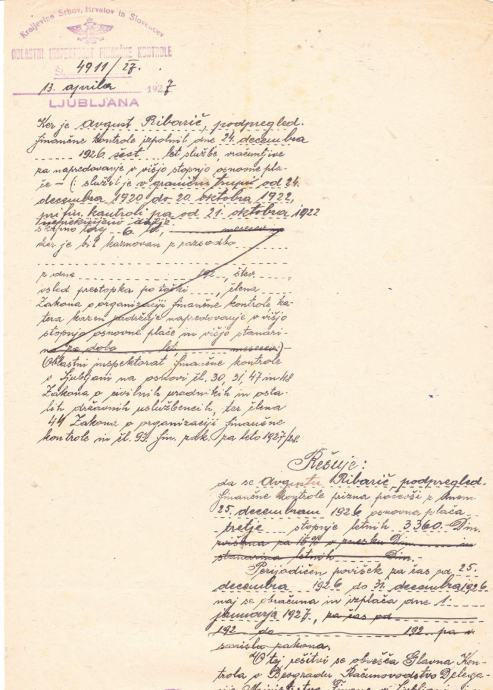 Kraljevina Srbov, Hrvatov in Slovencev
OBLASTNI INSPEKTORAT FINANČNE KONTROLE
Š. 4911/27.
13. aprila 1927
LJUBLJANA
Ker je Avgust Ribarič, podpregled.
finančne kontrole izpolnil dne 24. decembra
1926 šest let službe, računljive
za napredovanje v višjo stopnjo osnovne pla-
če - (služil je v granični trupi od 24.
decembra 1920 do 20. oktobra 1922,
pri fin. kontroli pa od 21. oktobra 1922
skupno torej 6 let, mesecev
ker je bil kaznovan z razsodbo
z dne 192 , štev.
vsled prestopka po točki , člena
Zakona o organizaciji finančne kontrole ka-
tera kazen zadržuje napredovanje v višjo
stopnjo osnovne plače in višjo stanari-
no za dobo let mesecev)
Oblastni inspektorat finančne kontrole
v Ljubljani na osnovi čl. 30, 31, 47 in
Zakona o civilnih uradnikih in osta-
lih državnih uslužbencih, ter člena
44 Zakona o organizaciji finančne
kontrole in čl. fin. zak. za leto 1927/28.
Rešuje:
da se Avgustu Ribarič, podpregled.
finančne kontrole prizna počevši z dnem
25. decembrom 1926 osnovna plača
tretje stopnje letnih 3360.- Din.
stanarina letnih Din.
Perijodičen povišek za čas od 25.
decembra 1926 do 31. decembra 1926
naj se obračuna in izplača dne 1.
januarja 1927, za čas od
192 do 192 pa v
smislu zakona.
O tej rešitvi se obvešča Glavna Kon-
trola v Beogradu, Računovodstvo Delega-
cije Ministrstva Financ v Ljubljani